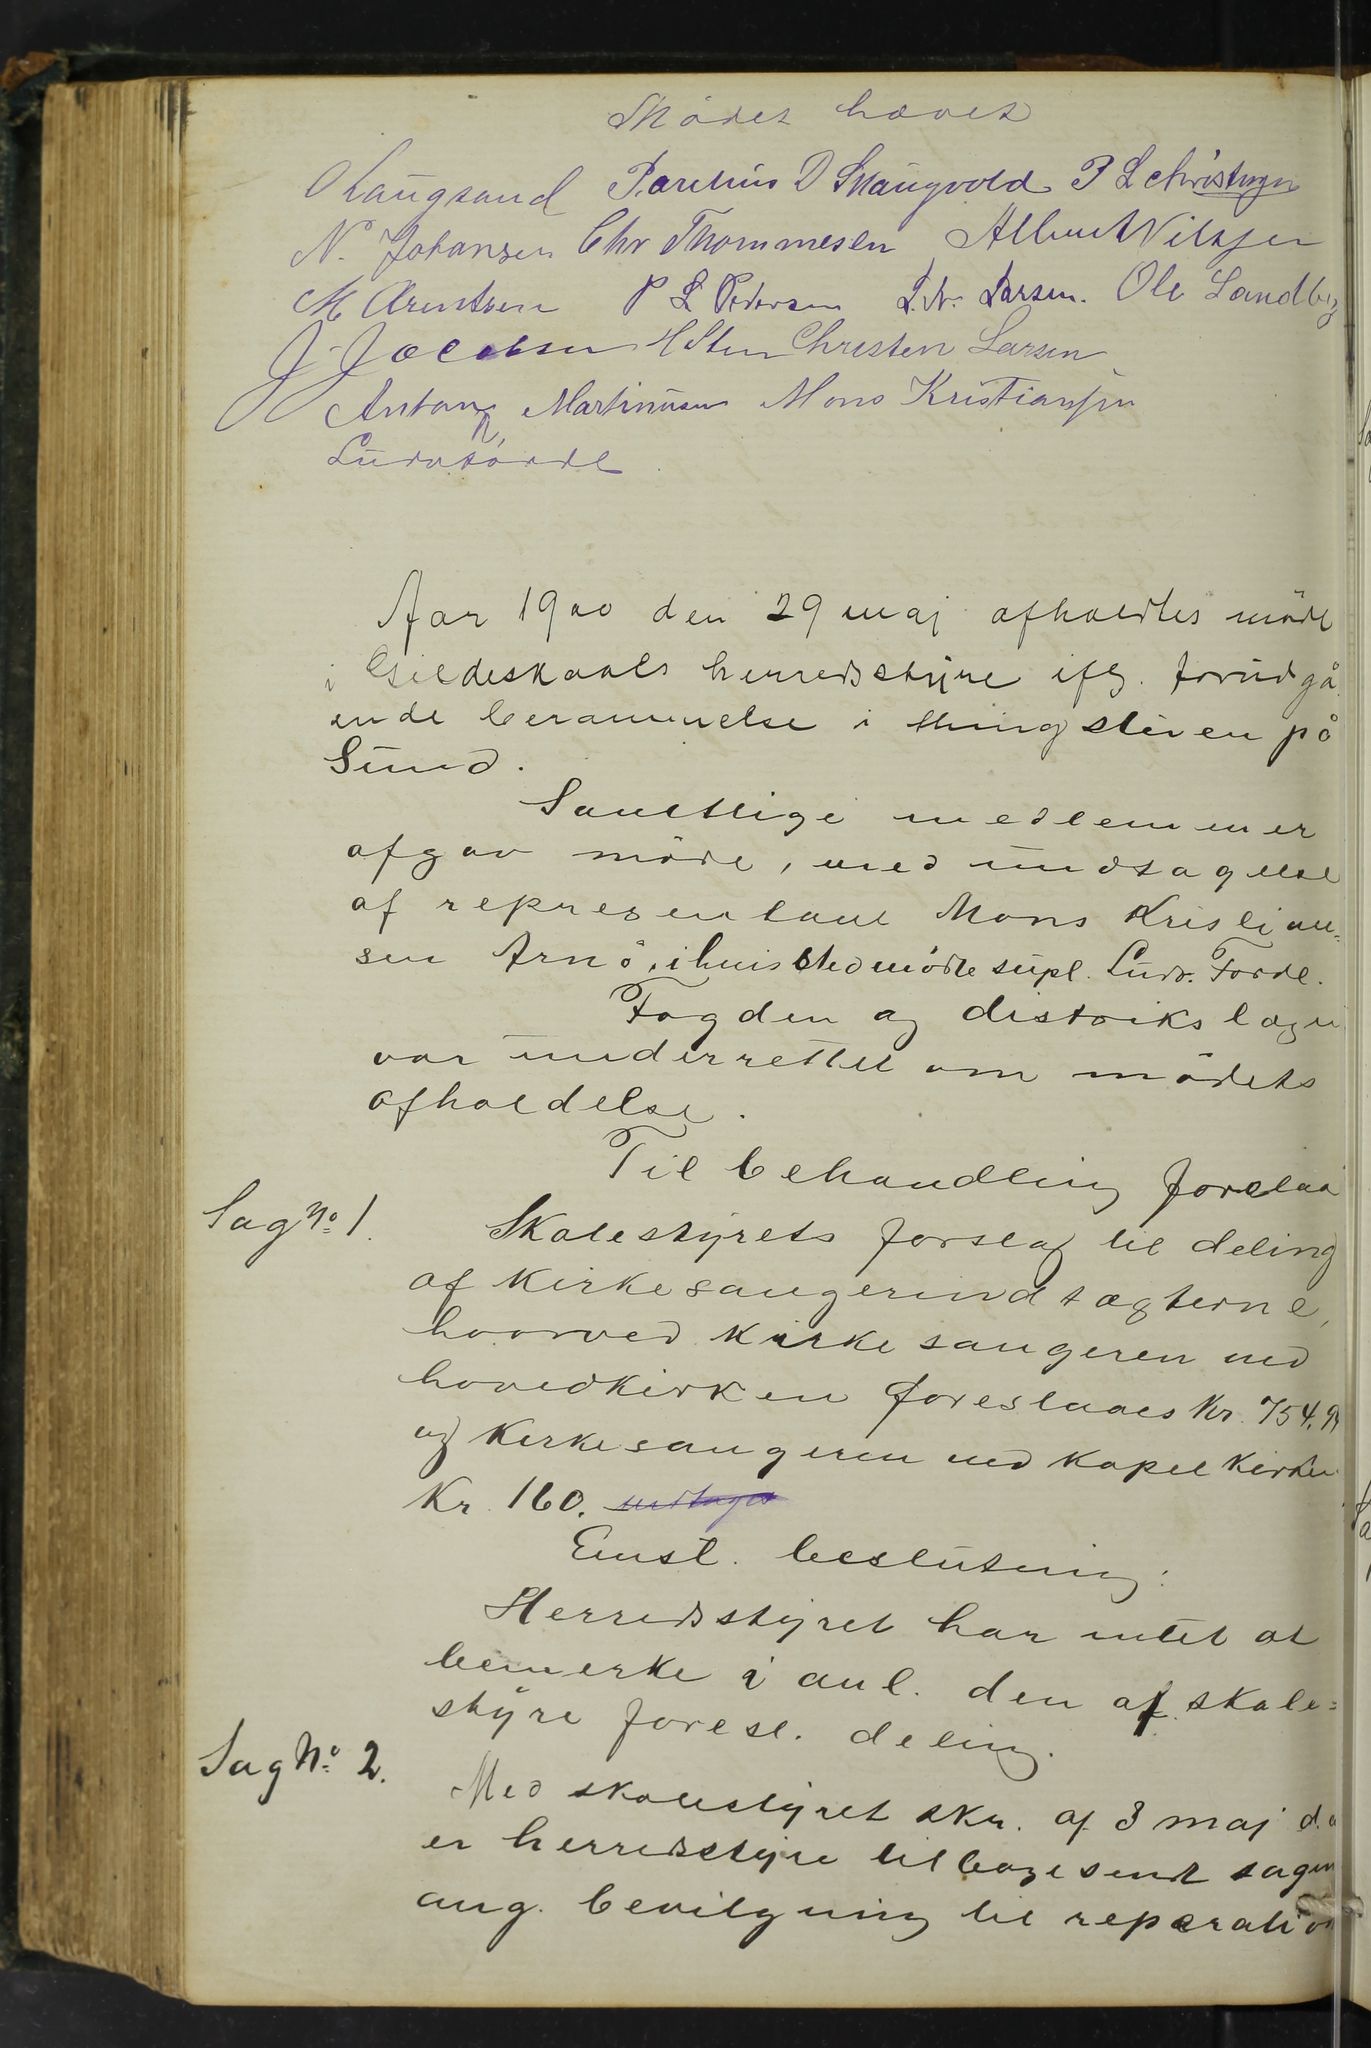 Mödet hævet
O Laugsand Parelius D Skaugvold P L Christensen
N. Johansen Chr Thommesen Albert Nilsjen
M Arentsen P L Pedersen L. N. Larsen. Ole Sandberg
J. Jacobsen H Sten Christen Larsen
Anton Martinusen Mons Kristiansen
Ludv Förde
Aar 1900 den 29 maj afholdtes möde
i Gildeskaals herredsstyre iflg. forudgå
ende berammelse i thingstuen på
Sund.
Samtlige medlemmer
afgav möde, med undtagelse
af representant Mons Kristian=
sen Arnö, i hvis sted mödte supl. Ludv. Forde.
Fogden og distrikslægen
var underrettet om mödets
afholdelse.
Til behandling forelaa
Sag No 1.
Skolestyrets forslag til deling
af kirkesangerindtægterne,
hvorved kirkesangeren ved
hovedkirken foreslaaes Kr. 754.94
og kirkesangeren ved kapelkirken
Kr 160. undtaget
Enst. beslutning:
Herredsstyret har intet at
bemerke i anl. den af skole=
styre foresl. deling.
Sag No 2.
Med skolestyret skr. af 3 maj d. a
er herredsstyre tilbagesendt sagen
ang. bevilgning til reparation